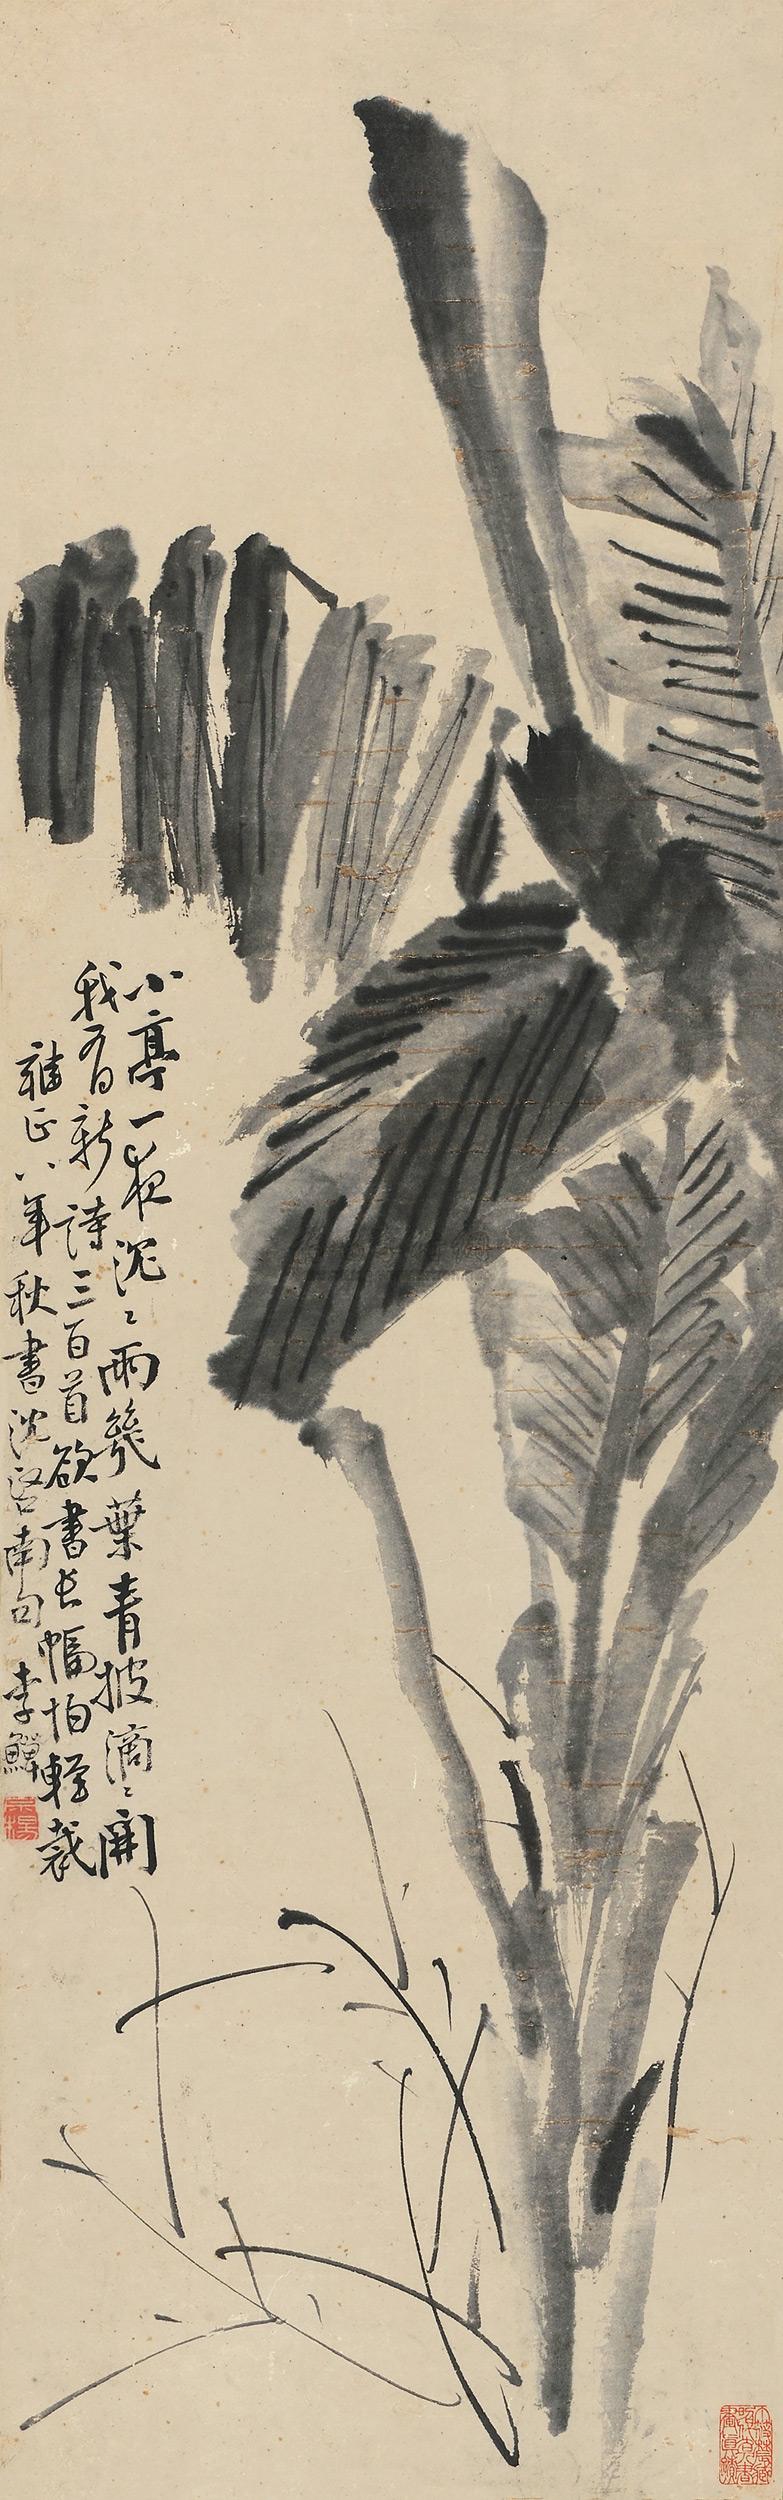 小亭一夜沉〻雨幾葉青披滴〻開
我有新詩三百首欲書長幅怕輕裁
雍正八年秋書沈啓南句 李鱓